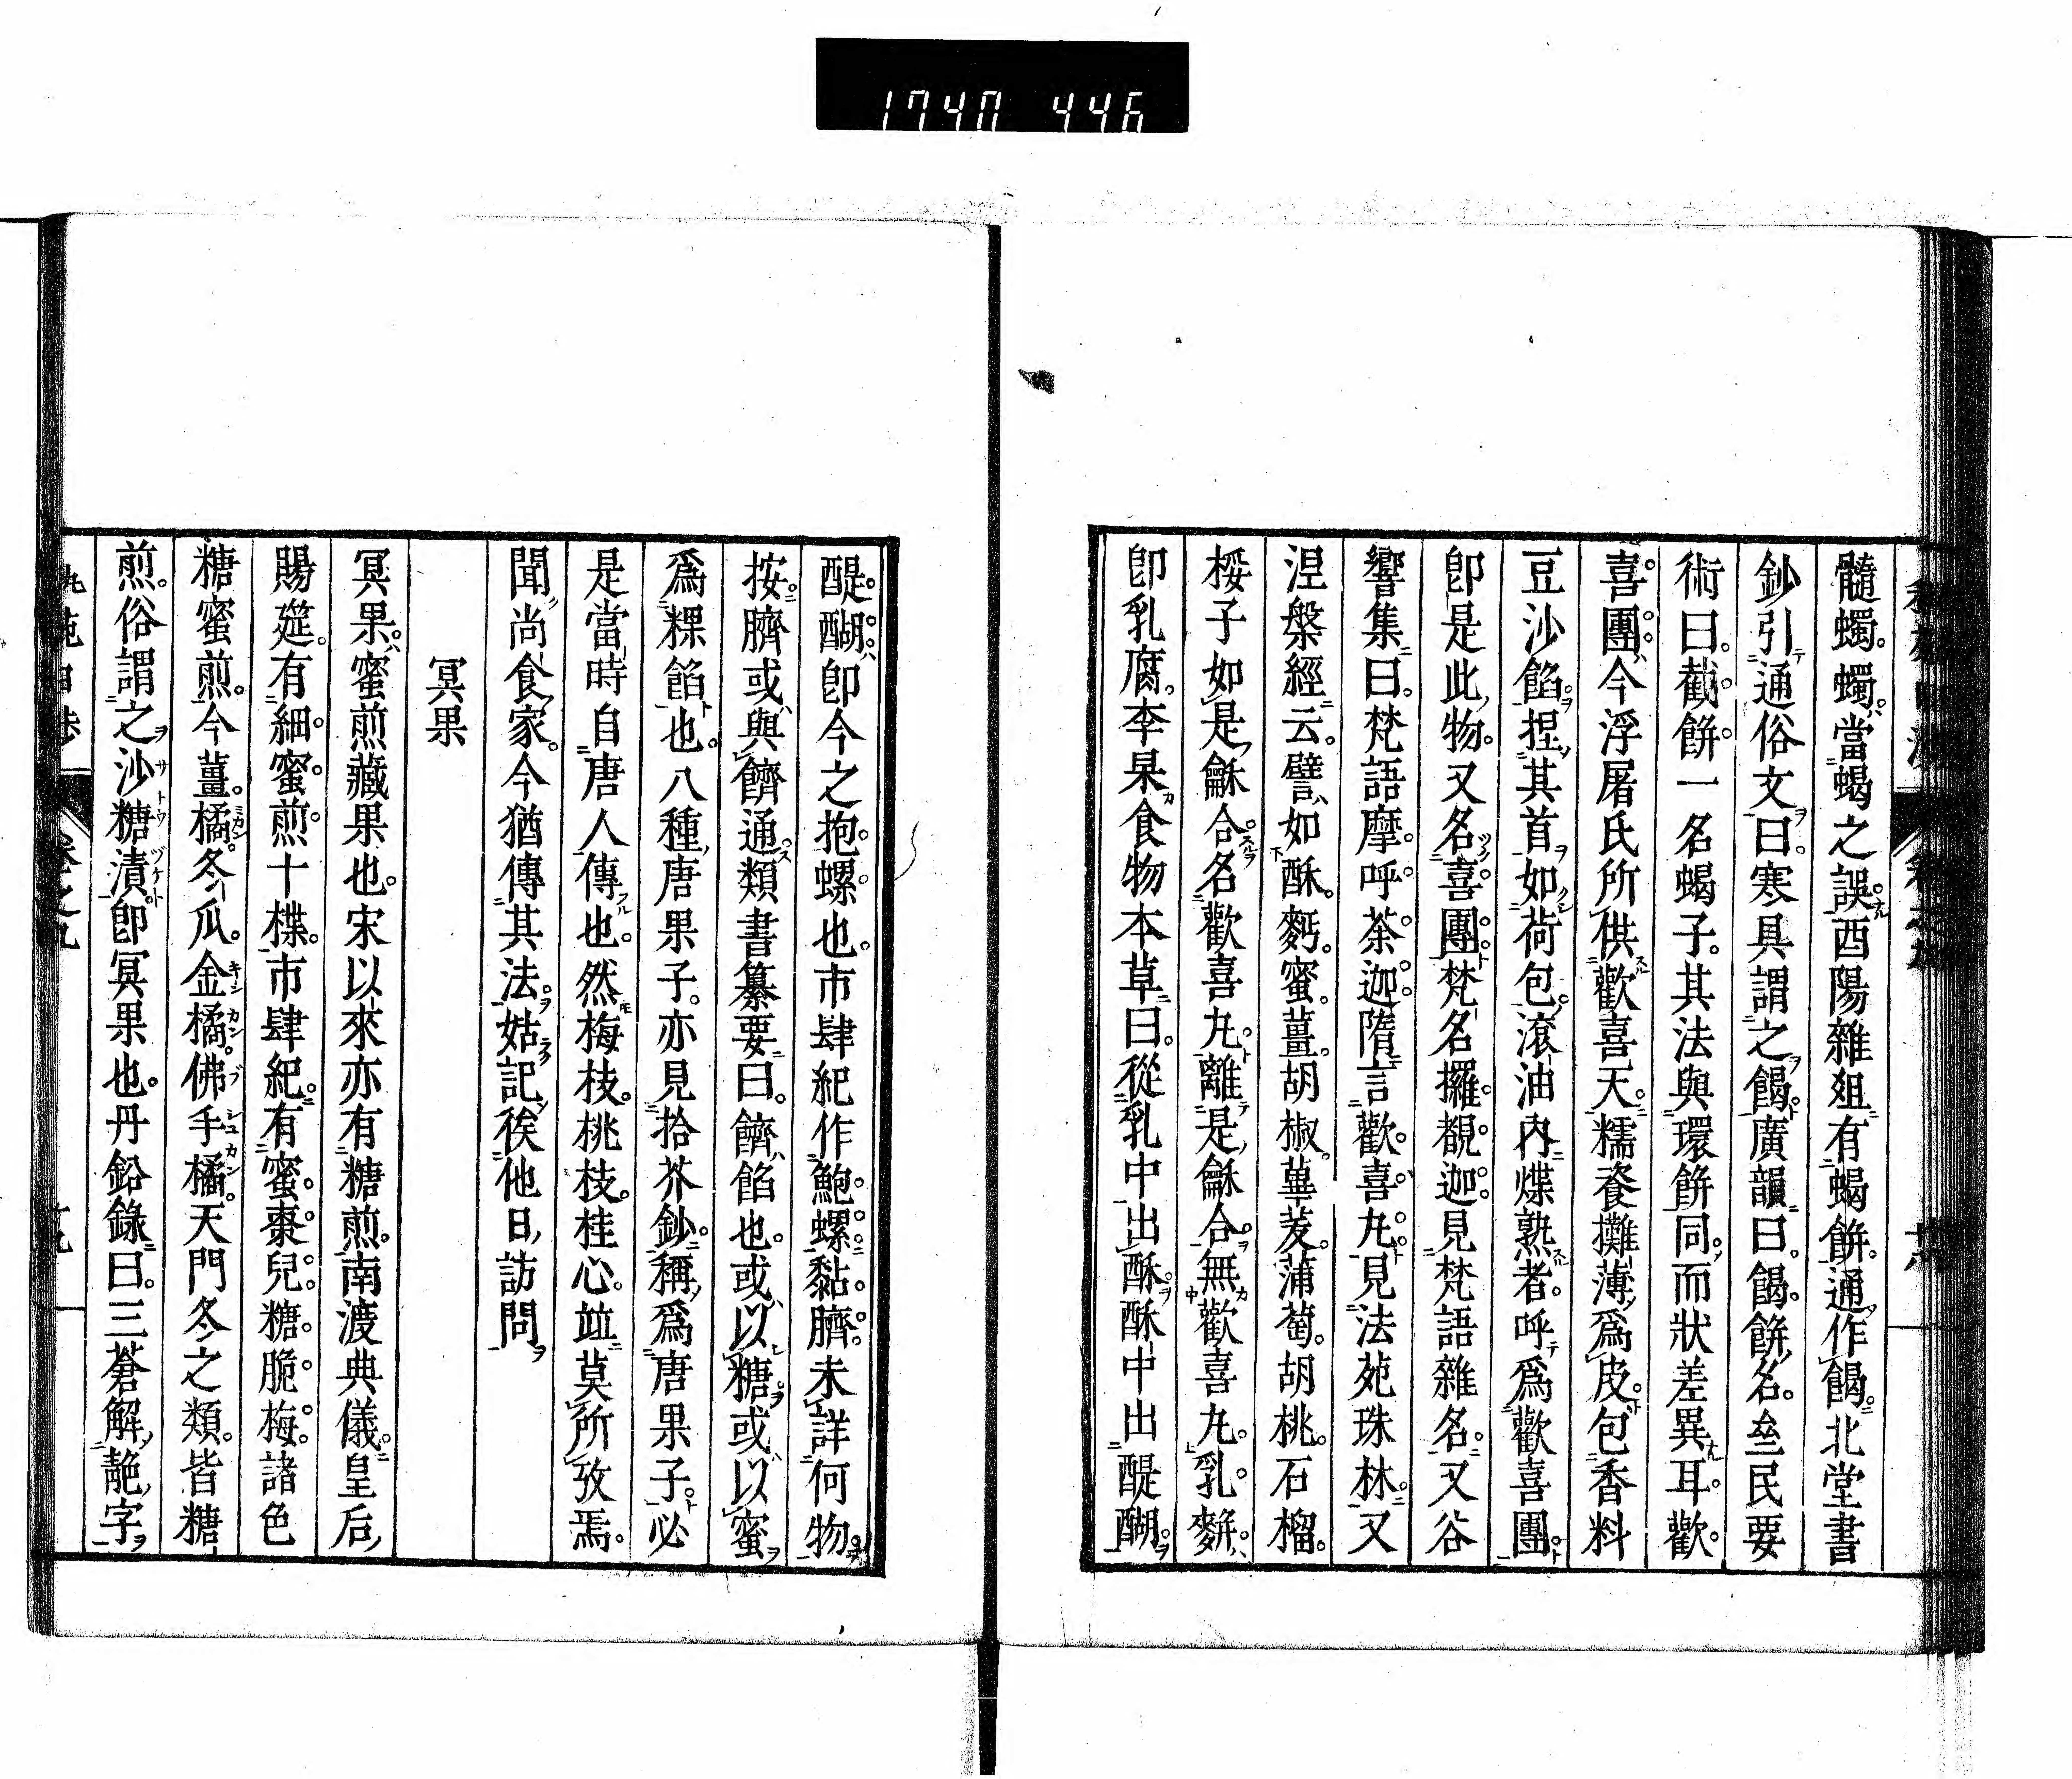 1740 446
髓蠋。蠋。當蝎之誤。酉陽雜俎有蝎餅。通作餲。北堂書
鈔引通俗文曰。寒具謂之餲。廣韻曰。餲。餅名。㕘民要
術曰。截餅一名蝎子。其法與環餅同。而狀差異耳。歡
喜團。今浮屠氏所供歡喜天。糯餈攤薄爲皮。包香料
豆沙餡。捏其首如荷包。滾油內煠熟者。呼爲歡喜團。
卽是此物。又名喜團。梵名攞覩迦。見梵語雜名。又谷
響集曰。梵語摩呼荼迦。隋言歡喜丸。見法苑珠林。又
涅槃經云。譬如酥。麪。蜜。薑。胡椒。蓽茇。蒲萄。胡桃。石榴。
桵子如是龢合。名歡喜丸。離是龢合。無歡喜丸。乳麰。
卽乳腐。李杲食物本草曰。從乳中出酥。酥中出醍醐。
醍醐。卽今之抱螺也。市肆紀作鮑螺。黏臍。未詳何物。
按。臍或與䭣通。類書纂要曰。䭣。餡也。或以糖。或以蜜
爲粿餡也。八種唐果子。亦見拾芥鈔。稱爲唐果子。必
是當時自唐人傳也。然梅枝。桃枝。桂心。竝莫所攷焉。
聞尚食家。今猶傳其法。姑記俟他日訪問。
冥果
冥果。蜜煎藏果也。宋以來亦有糖煎。南渡典儀。皇后
賜筵。有細蜜煎十楪。市肆紀。有蜜棗兒。糖脆梅。諸色
糖蜜煎。今薑。橘。冬瓜。金橘。佛手橘。天門冬之類。皆糖
煎。俗謂之沙糖漬。卽冥果也。丹鉛錄曰。三蒼解䤄字